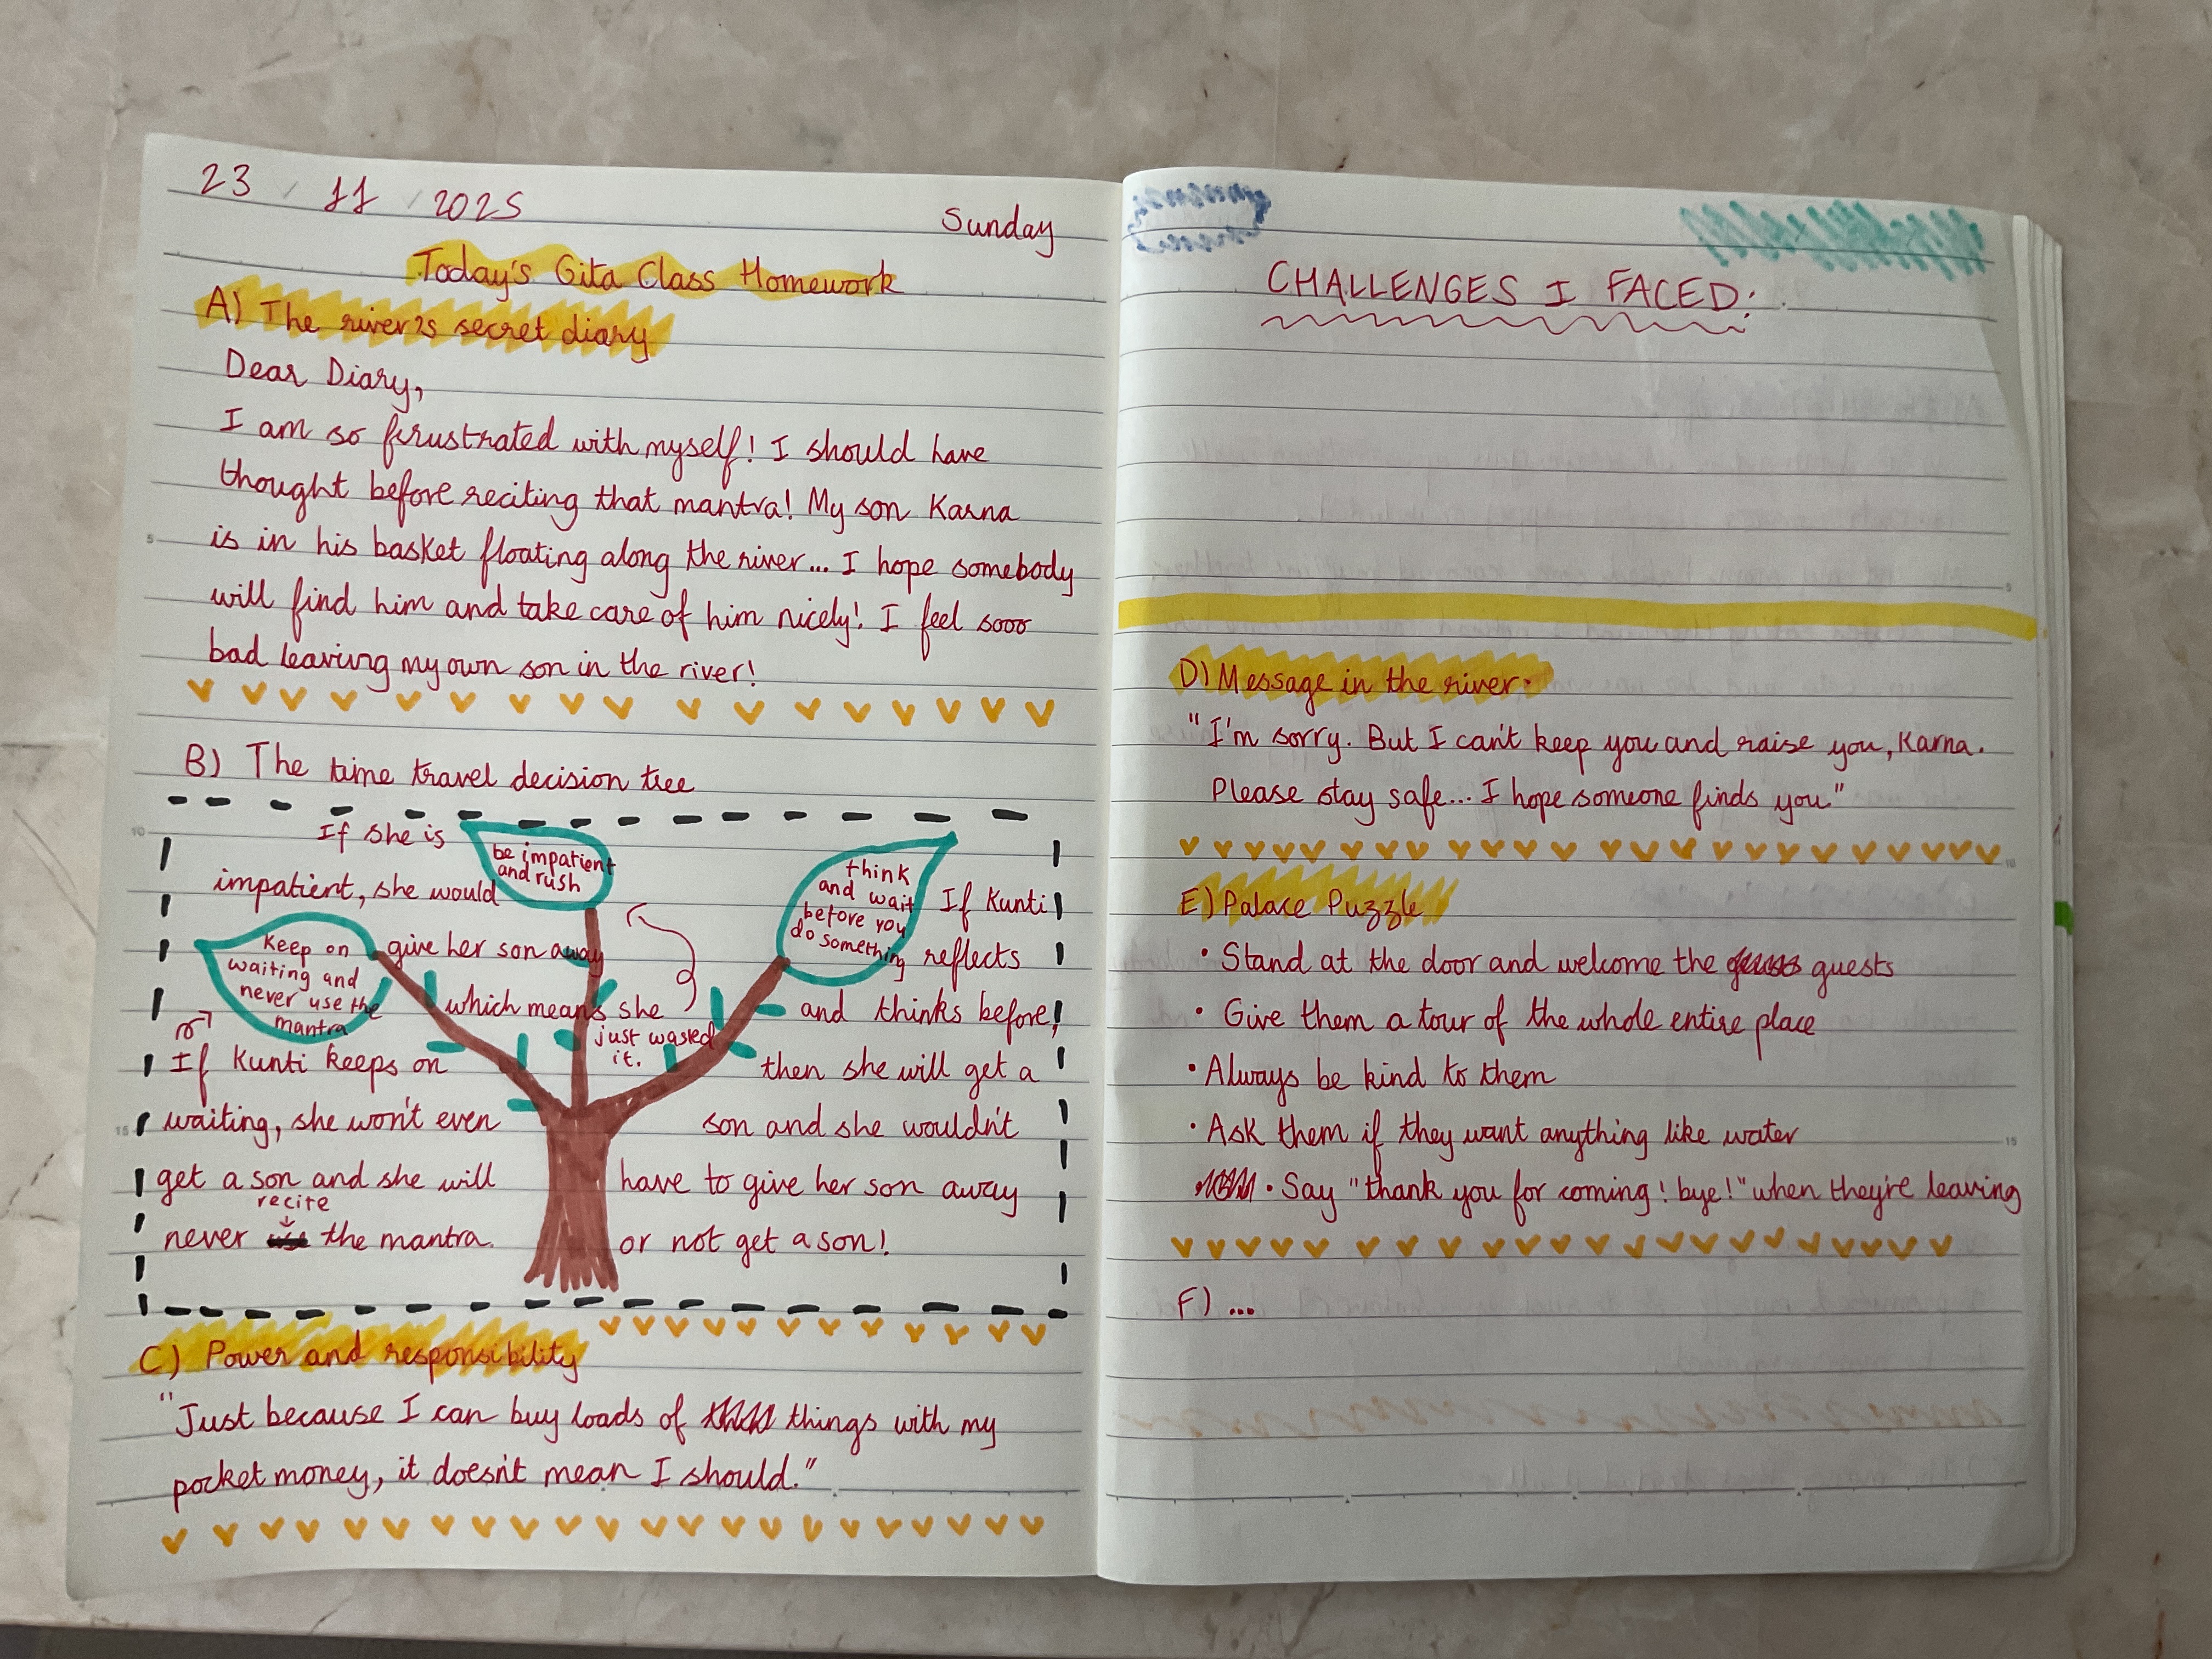 23 / 11 / 2025
Sunday
Today's Gita Class Homework
A) The river's secret diary
Dear Diary,
I am so frustrated with myself! I should have
thought before reciting that mantra! My son Karna
is in his basket floating along the river... I hope somebody
will find him and take care of him nicely! I feel sooo
bad leaving my own son in the river!
B) The time travel decision tree
If she is
impatient, she would
give her son away
which means she
just wasted
it.
be impatient
and rush
think
and wait
before you
do something
If Kunti
reflects
and thinks before,
then she will get a
son and she wouldn't
have to give her son away
or not get a son!
Keep on
waiting and
never use the
mantra
If Kunti keeps on
waiting, she won't even
get a son and she will
never recite the mantra.
C) Power and responsibility
"Just because I can buy loads of things with my
pocket money, it doesn't mean I should."
CHALLENGES I FACED:
D) Message in the river:
"I'm sorry. But I can't keep you and raise you, Karna.
Please stay safe... I hope someone finds you"
E) Palace Puzzle
• Stand at the door and welcome the guests
• Give them a tour of the whole entire place
• Always be kind to them
• Ask them if they want anything like water
• Say "thank you for coming! bye!" when they're leaving
F) ...